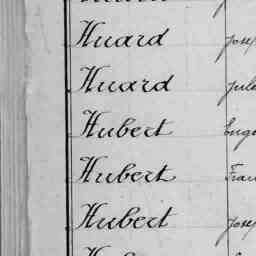 Huard Jose
Huard Jule
Hubert Eug
Hubert Fran
Hubert Jose